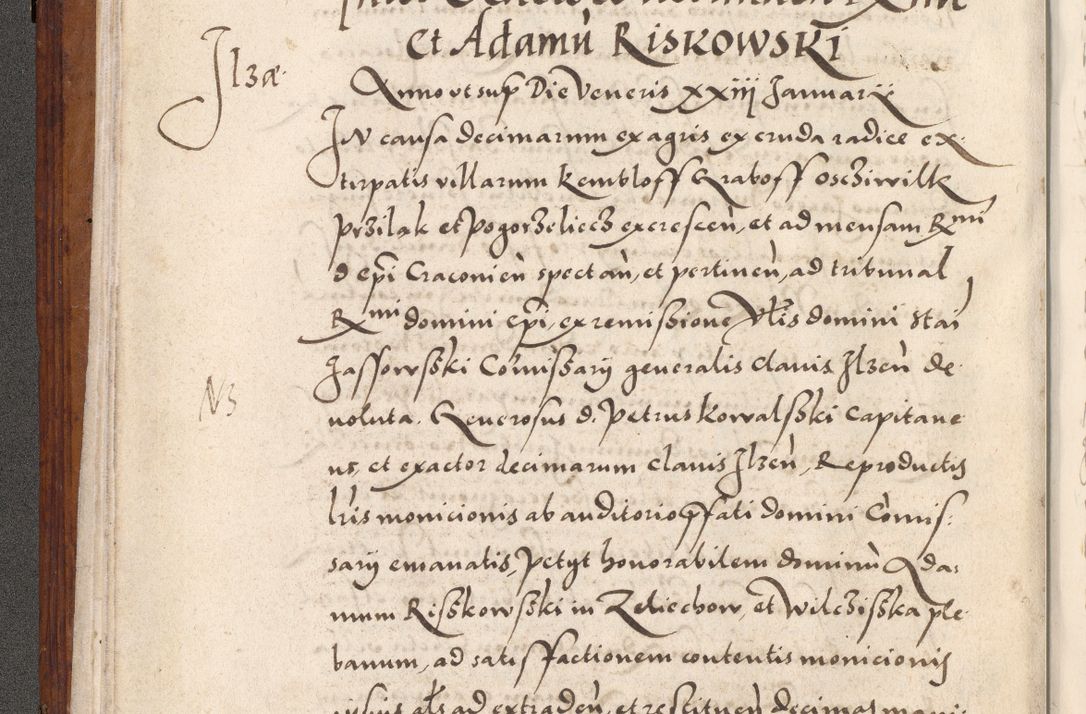 Et Adamù Riskowski
Ilzæ
Anno vt sup Die Veneris xxiij Januarij
In causa decimarum ex agris ex cruda radice ex,
tirpatis villarum Kembloff Graboff Oschiwilk
Przilak et Pogorzeliecz excrescen̄, et ad mensam Rmi
d epi Craconien̄ spectan̄, et pertinen̄, ad tribunal
Rmi domini epi, ex remissione Nlis domini Stan̄
Jassowski Comissarij generalis clauis Ilzen̄ de,
N3
uoluta. Generosus d. Petrus Kowalski Capitane
us, et exactor decimarum clauis Ilzen̄, Reproductis
lris monicionis ab auditorio pfati domini Comis,
sarij emanatis, Petijt honorabilem dominù Ada,
mum Riskowski in Zeliechow, et Wilcziska ple
banum, ad satisfactionem contentis monicionis
als ad extraden̄, et restituen̄ decimas